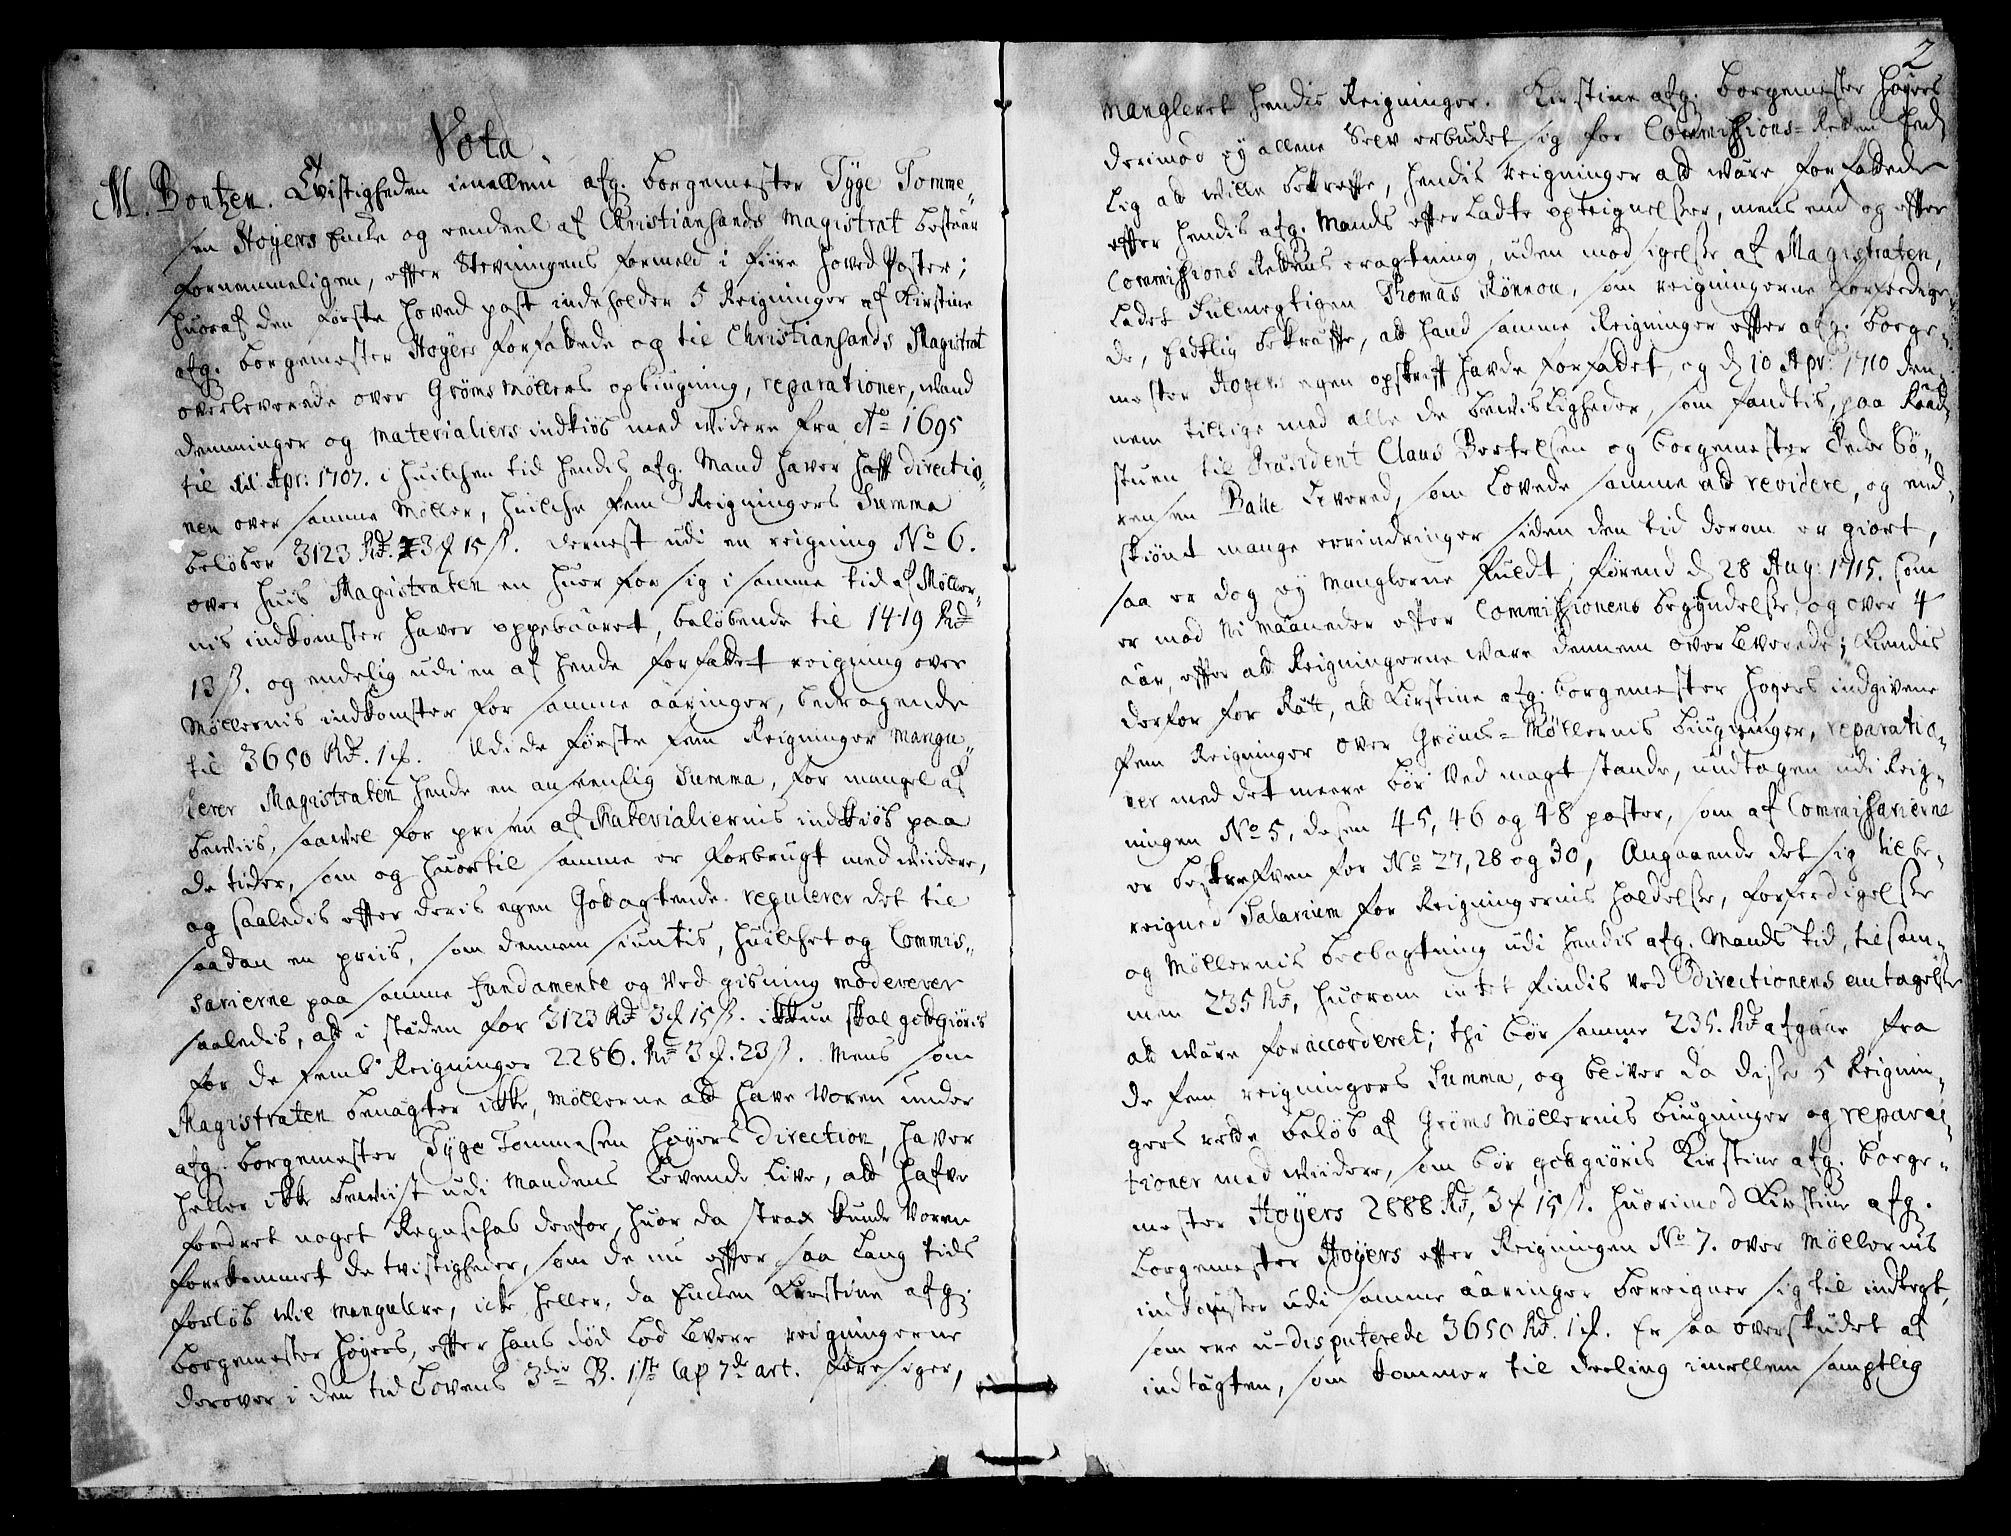 Vota
M. Bentzen. Tvistigheden imellem afg. borgemester Tyge Tomme-
sen Høyers Encke og eendeel af Christiansands Magistrat bestaar
fornemmeligen, effter Stevningens formeld i fiire hoved Poster;
huoraf den første hoved post indeholder 5 Reigninger af Kirstine
afg. borgemester Høyers forfattede og til Christiansands Magistrat
overleverede over Grøms Møllers opbiugning, reparationer, vand
demninger og materialiers indkiøb med widere fra Ao 1695
til Apr: 1707. i huilchen tid hendis afg. Mand haver hafft directio-
nen over samme Møller, huilche fem Reigningers Summa
beløber 3123 Rd. 3 ℳ 15 ß. dernest udi en reigning No 6.
over huis Magistraten en huer for sig i samme tid af Møller-
nis indkomster haver oppebaaret, beløbende til 1419 Rd
13 ß. og endelig udi en af hende forfattet reigning over
Møllernis indkomster for samme aaringer, bedragende
til 3650 Rd. 1 ℳ. Udi de første fem Reigninger mangu-
lerer Magistraten hende en anseenlig Summa, for mangel af
beviis, saavel for prisen af Materialiernis indkiøb paa
de tider, som og huortil samme er forbrugt med widere,
og saaledis effter deris egen Godagtende regulerer det til
saadan en priis, som dennem siuntis, huilchet og Commis-
sarierne paa samme fundamente og ved gisning modererer
saaledis, att i stæden for 3123 Rd 3 ℳ 15 ß. ikkun skal godgiøris
for de fem Reigninger 2286. Rd 3 ℳ. 23 ß. Mens som
Magistraten benægter icke, Møllerne att have været under
afg. borgemester Tyge Tommesen Høyers direction, haver
heller ikke beviist udi Mandens levende live, att hafve
fordret noget Regnschab derfor, huor da strax kunde været
foerkommet de tvistigheder, som de nu effter saa lang tids
forløb wil mangulere, icke heller, da Encken Kirstine afg.
borgemester Høyers, effter hans død lod levere reigningerne
derover i den tid Lovens 3die B. 1ste Cap 7de art. foresiger,
2
mangleret hendis Reigninger. Kirstine afg. borgemester Høyers
derimod ey allene Selv erbudet sig for Commissions-Retten Eed-
lig att wille bekreffte, hendis reigninger att være forfattede
effter hendis afg. Mands effterladte opteignelser, mens end og effter
Commissions Rettens eragtning, uden modsigelse af Magistraten,
ladet Fulmegtigen Thomas Rønnou, som reigningerne forferdige-
de, Eedlig bekræffte, att hand samme Reigninger effter afg. borge-
mester Høyers egen opskrifft havde forfattet, og d 10 Apr: 1710 den-
nem tillige med alle de bevisligheder, som fandtis, paa Raad-
stuen til Præsident Claus Bertelsen og borgemester Peder Sø-
rensen Balle levered, som lovede samme att revidere, og end-
skiønt mange erindringer siden den tid derom er giort,
saa er dog ey manglerne fuldt, førend d 28 Aug: 1715. som
er mod Ni Maaneder effter Commissionens begyndelse, og over 4
aar, effter att Reigningerne ware dennem overleverede; Kiendis
derfor for Rætt, att Kirstine afg. borgemester Høyers indgivene
fem Reigninger over Grøms-Møllernis biugninger, reparatio-
ner med det meere bør ved magt stande, undtagen udi Reig-
ningen No 5, desen 45, 46 og 48 poster, som af Commissarierne
er beskrefven for No 27, 28 og 30, Angaaende det sig tilbe-
reigned Salarium for Reigningernis holdelse, forferdigelse
og Møllernis beobagtning udi hendis afg. Mands tid, tilsam-
men 235 Rd, huorom intet findis ved Directionens antagelse
att være foraccorderet; thi bør samme 235. Rd afgaae fra
de fem reigningers Summa, og bliver da disse 5 Reignin-
gers rette beløb af Grøms Møllernis biugninger og repara-
tioner med widere, som bør godgiøris Kirstine afg. borge-
mester Høyers 2888 Rd, 3 ℳ 15 ß. huorimod Kirstine afg.
borgemester Høyers effter Reigningen No 7. over Møllernis
indkomster udi samme aaringer bereigner sig til indtegt,
som ere u-disputerede 3650 Rd. 1 ℳ. Er saa overskudet af
indtægten, som kommer til deeling imellem samptlig